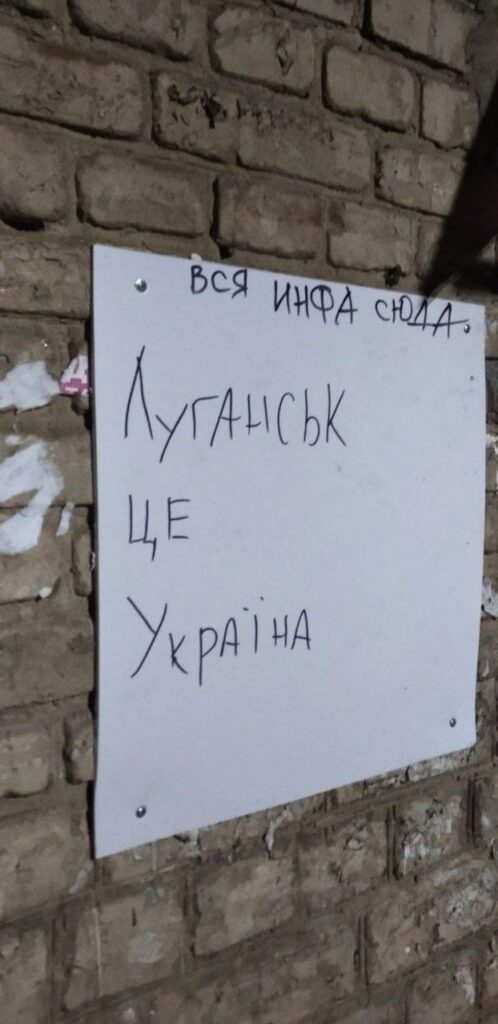 ВСЯ ИНФА СЮДА
Луганськ
ЦЕ
Україна